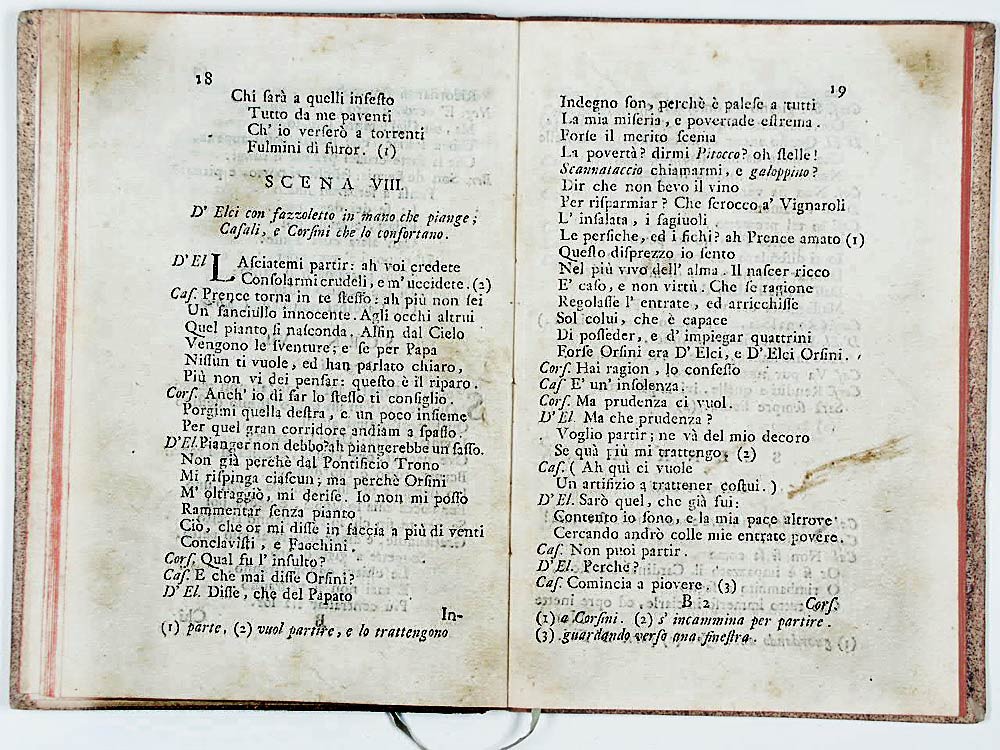 18
Chi sarà a quelli infesto
Tutto da me paventi
Ch' io verserò a torrenti
Fulmini di furor. (1)
SCENA VIII.
D' Elci con fazzoletto in mano che piange;
Casali, e Corsini che lo confortano.
D' El LAsciatemi partir: ah voi credete
Consolarmi crudeli, e m' uccidete. (2)
Cas. Prence torna in te stesso: ah più non sei
Un fanciullo innocente. Agli occhi altrui
Quel pianto si nasconda. Alfin dal Cielo
Vengono le sventure; e se per Papa
Nissun ti vuole, ed han parlato chiaro,
Più non vi dei pensar: questo è il riparo.
Cors. Anch' io di far lo stesso ti consiglio.
Porgimi quella destra, e un poco insieme
Per quel gran corridore andiam a spasso.
D' El. Pianger non debbo? ah piangerebbe un sasso.
Non già perchè dal Pontificio Trono
Mi rispinga ciascun; ma perchè Orsini
M' oltraggiò, mi derise. Io non mi posso
Rammentar senza pianto
Ciò, che or mi disse in faccia a più di venti
Conclavisti, e Facchini.
Cors. Qual fu l' insulto?
Cas. E che mai disse Orsini?
D' El. Disse, che del Papato
In-
(1) parte, (2) vuol partire, e lo trattengono
19
Indegno son, perchè è palese a tutti
La mia miseria, e povertade estrema.
Forse il merito scema
La povertà? dirmi Pitocco? oh stelle!
Scannataccio chiamarmi, e galoppino?
Dir che non bevo il vino
Per risparmiar? Che scrocco a' Vignaroli
L' insalata, i fagiuoli
Le persiche, ed i fichi? ah Prence amato (1)
Questo disprezzo io sento
Nel più vivo dell' alma. Il nascer ricco
E' caso, e non virtù. Che se ragione
Regolasse l' entrate, ed arricchisse
Sol colui, che è capace
Di posseder, e d' impiegar quattrini
Forse Orsini era D' Elci, e D' Elci Orsini.
Cors. Hai ragion, lo confesso
Cas E' un' insolenza.
Cors. Ma prudenza ci vuol.
D' El. Ma che prudenza?
Voglio partir; ne và del mio decoro
Se quà più mi trattengo. (2)
Cas. ( Ah quì ci vuole
Un artifizio a trattener costui. )
D' El. Sarò quel, che già fui:
Contento io sono, e la mia pace altrove
Cercando andrò colle mie entrate povere.
Cas. Non puoi partir.
D' El. Perchè?
Cas. Comincia a piovere. (3)
B 2 Cors.
(1) a Corsini. (2) s' incammina per partire.
(3) guardando verso una finestra.